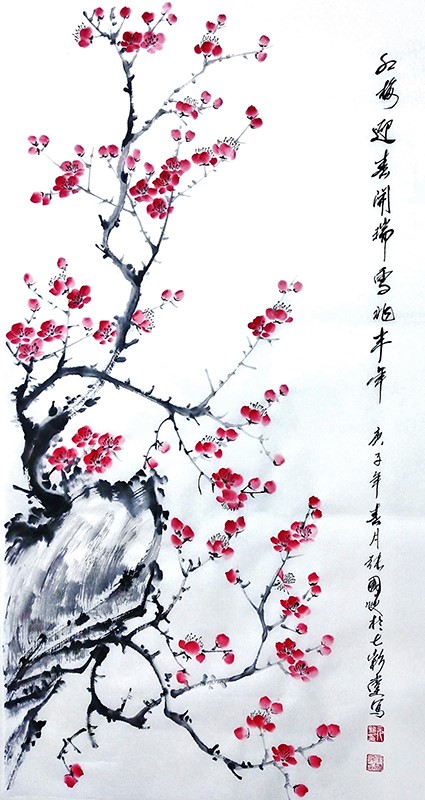 红梅迎春开瑞雪兆丰年
庚子年春月张国 于七彩 写